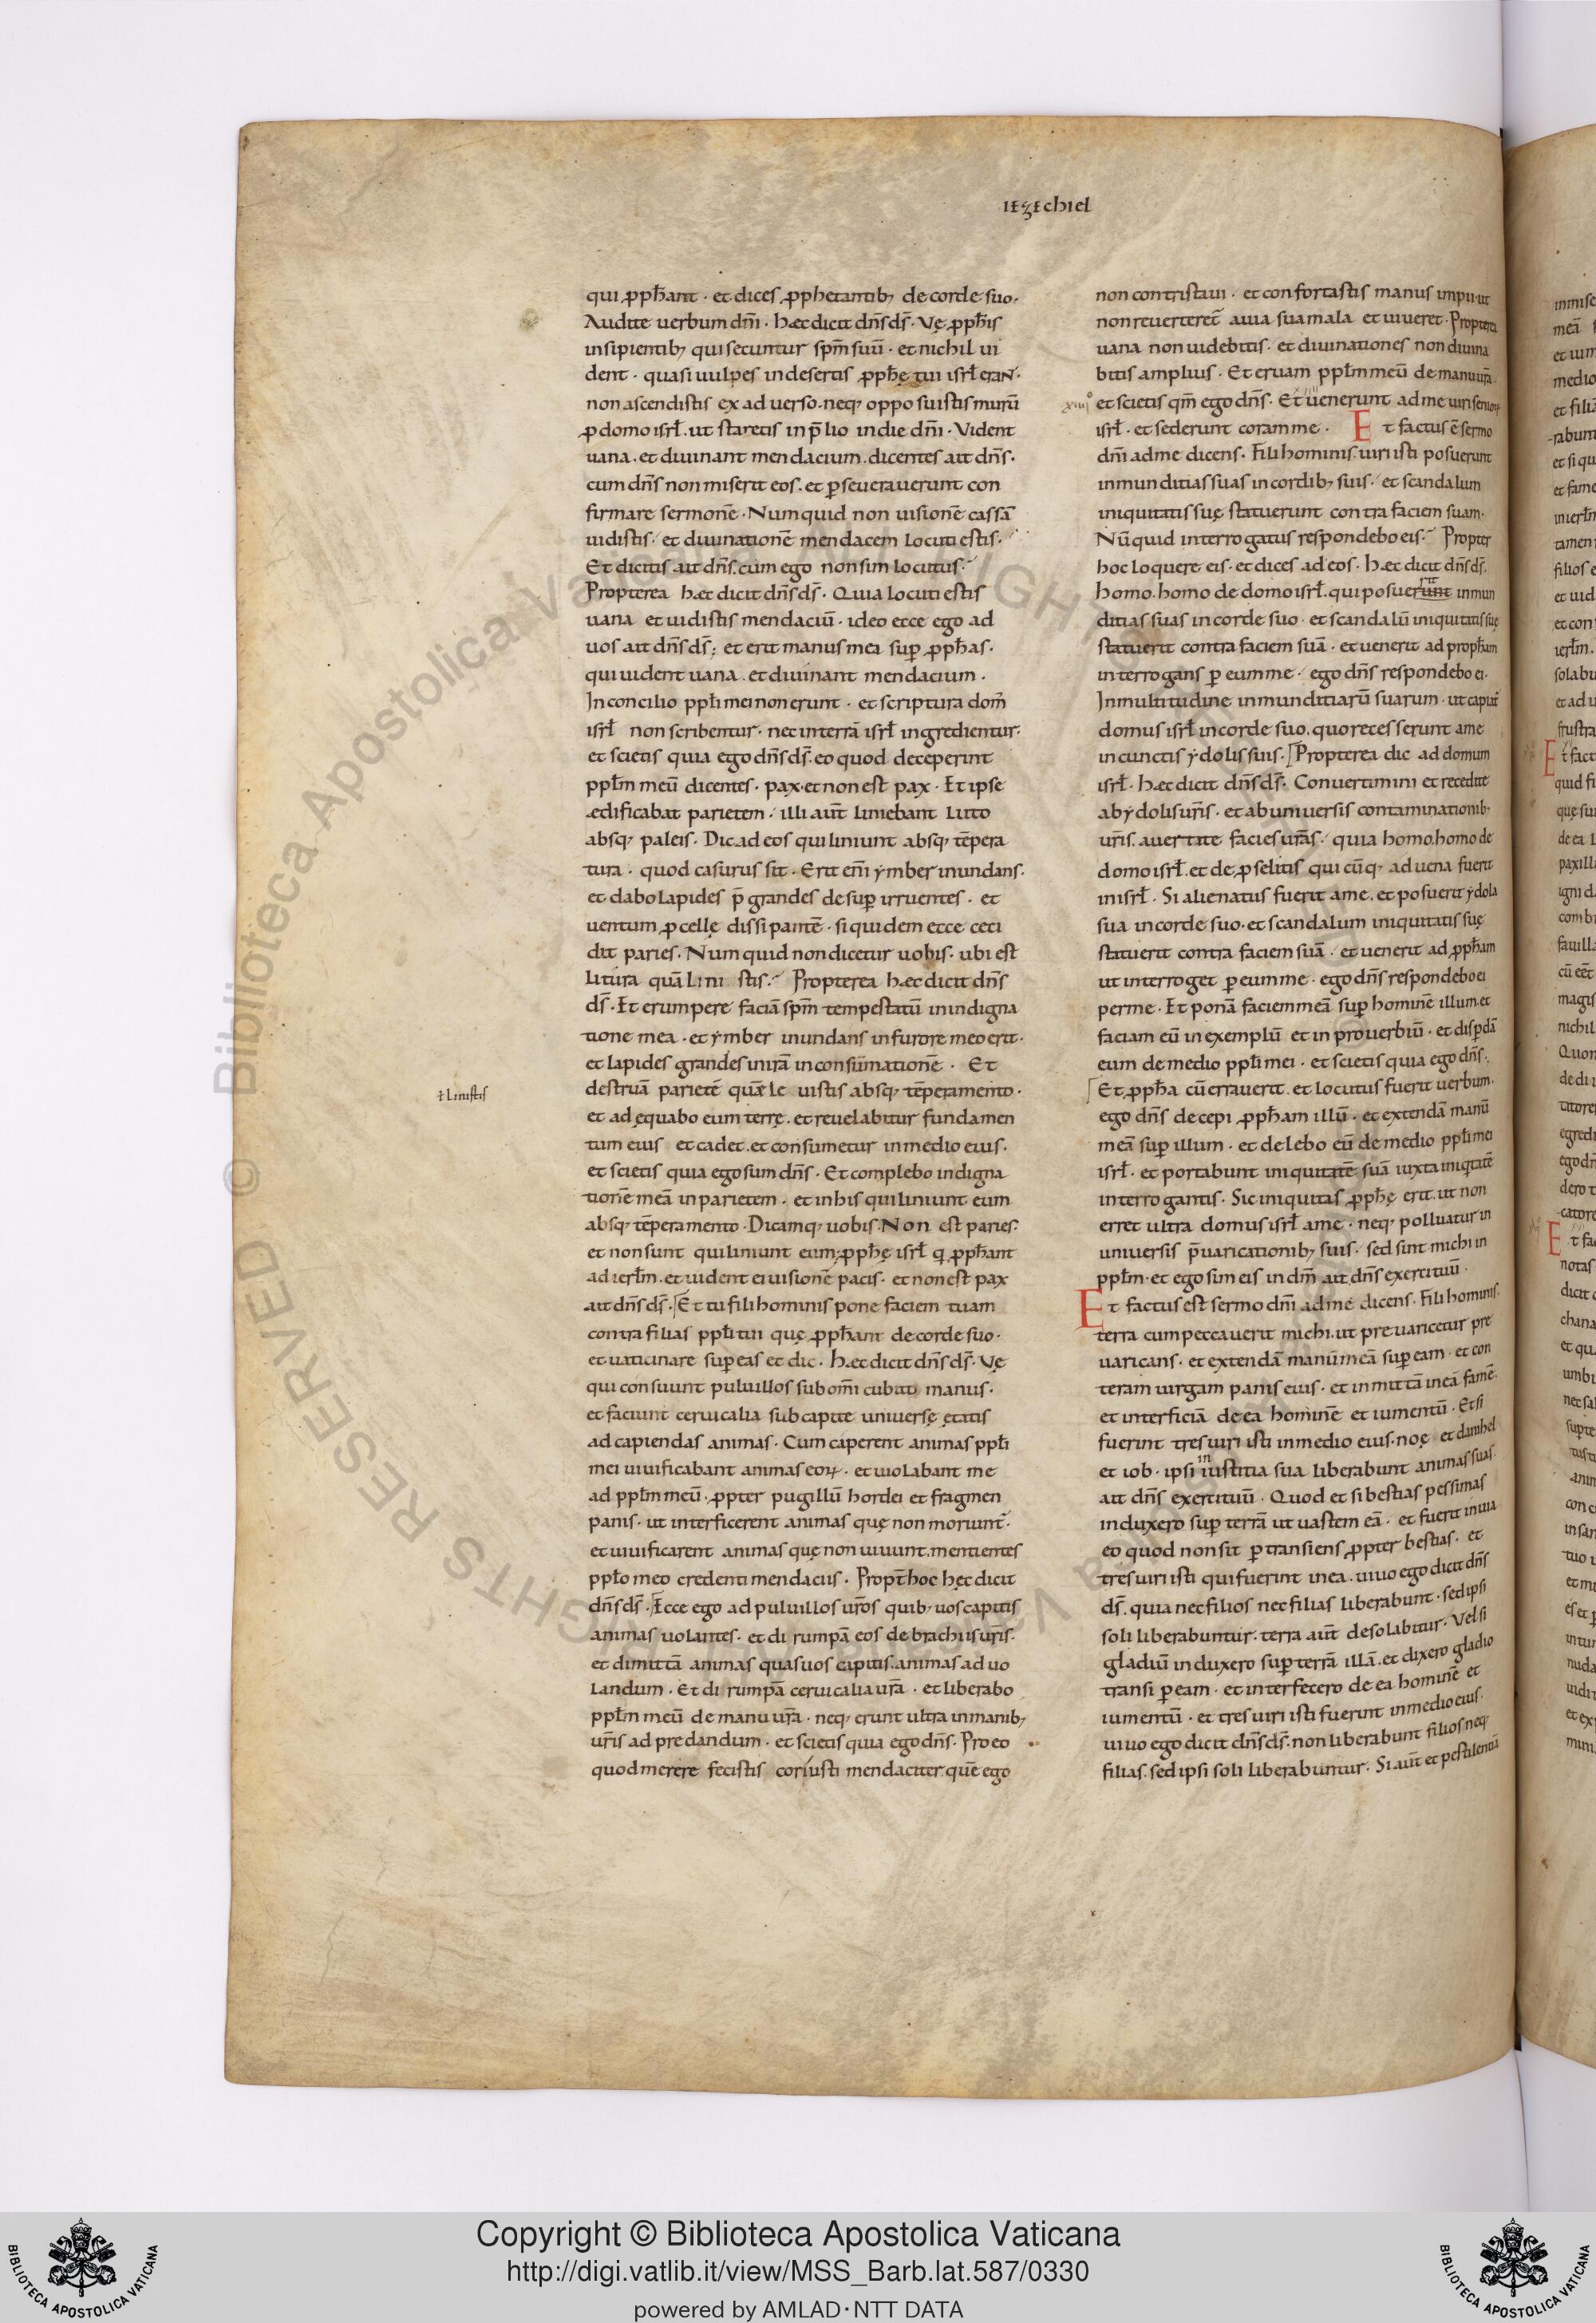 ıezechiel
qui ꝓph̄ant · et dices ꝓphetantib; de corde suo ·
Audite uerbum dn̄i · hæc dicit dn̄s ds̄ · Vę ꝓph̄is
insipientib; qui secuntur sp̄m suū · et nichil ui
dent · quasi uulpes in desertis ꝓph̄ę tui isrł eraN ·
non ascendistis ex aduerso · neq; opposuistis murū
ꝓ domo isrł · ut staretis in p̄lio in die dn̄i · Vident
uana · et diuinant mendacium · dicentes ait dn̄s ·
cum dn̄s non miserit eos · et ꝑseuerauerunt con
firmare sermonē · Numquid non uisionē cassā
uidistis · et diuinationē mendacem locuti estis ·
Et dicitis ait dn̄s · cum ego non sim locutus ·
Propterea hæc dicit dn̄s ds̄ · Quia locuti estis
uana et uidistis mendaciū · ideo ecce ego ad
uos ait dn̄s ds̄ ; et erit manus mea suꝑ ꝓph̄as ·
qui uident uana · et diuinant mendacium ·
In concilio pplı̄ mei non erunt · et scriptura dom̄
isrł non scribentur · nec in terrā isrł ingredientur ·
et scietis quia ego dn̄s ds̄ · eo quod deceperint
ppłm meū dicentes · pax · et non est pax · Et ipse
ædificabat parietem · illi aūt liniebant luto
absq; paleis · Dic ad eos qui liniunt absq; tēpera
tura · quod casurus sit · Erit eni̅ ẏmber inundans ·
et dabo lapides p̄grandes desuꝑ irruentes · et
uentum ꝓcellę dissipantē · siquidem ecce ceci
dit paries · Numquid non dicetur uobis · ubi est
litura quā lini stis · Propterea hæc dicit dn̄s
ds̄ · Et erumpere faciā sp̄m tempestatū in indigna
tione mea · et ẏmber inundans in furore meo erit ·
et lapides grandes in irā in consūmationē · Et
ł linistis
destruā parietē quāle uistis absq; tēperamento ·
et adęquabo eum terrę · et reuelabitur fundamen
tum eius et cadet · et consumetur in medio eius ·
et scietis quia ego sum dn̄s · Et complebo indigna
tionē meā in parietem · et in his qui liniunt eum
absq; tēperamento · Dicamq; uobis · Non est paries ·
et non sunt qui liniunt eum · ꝓph̄ę isrł q̇ ꝓph̄ant
ad ierłm · et uident ei uisionē pacis · et non est pax
ait dn̄s ds̄ · Et tu fili hominis pone faciem tuam
contra filias pplı̄ tui quę ꝓph̄ant de corde suo ·
et uaticinare suꝑ eas et dic · hæc dicit dn̄s ds̄ · Vę
qui consuunt puluillos sub om̄i cubito manus ·
et faciunt ceruicalia sub capite uniuersę ętatis
ad capiendas animas · Cum caperent animas pplı̄
mei uiuificabant animas eoꝝ · et uiolabant me
ad ppłm meū · ꝓpter pugillū hordei et fragmen
panis · ut interficerent animas quę non moriunt̄ ·
et uiuificarent animas quę non uiuunt · mentientes
ppło meo credenti mendaciis · Propt̄ hoc hęc dicit
dn̄s ds̄ · Ecce ego ad puluillos ur̄os quib; uos capitis
animas uolantes · et dirumpā eos de brachiis ur̄is ·
et dimittā animas quas uos capitis · animas ad uo
landum · Et dirumpā ceruicalia ur̄a · et liberabo
ppłm meū de manu ur̄a · neq; erunt ultra in manib;
ur̄is ad predandum · et scietis quia ego dn̄s · Pro eo
quod merere fecistis cor iusti mendaciter quē ego
non contristaui · et confortastis manus impii · ut
non reuerteret̄ a uia sua mala et uiueret · Propterea
uana non uidebitis · et diuinationes non diuina
bitis amplius · Et eruam ppłm meū de manu ur̄a ·
xiiii et scietis qm̄ ego dn̄s · Et uenerunt ad me uiri senioꝝ
isrł · et sederunt coram me · Et factus ē sermo
dn̄i ad me dicens · Fili hominis · uiri isti posuerunt
inmunditias suas in cordib; suis · et scandalum
iniquitatis suę statuerunt contra faciem suam ·
Nūquid interrogatus respondebo eis · Propter
hoc loquere eis · et dices ad eos · hæc dicit dn̄s ds̄ ·
homo · homo de domo isrł · qui posuerunt inmun
ditias suas in corde suo · et scandalū iniquitatis suę
statuerit contra faciem suā · et uenerit ad proph̄am
interrogans ꝑ eum me · ego dn̄s respondebo ei ·
In multitudine inmunditiarū suarum · ut capiat̄
domus isrł in corde suo · quo recesserunt a me
in cunctis ẏdolis suis · Propterea dic ad domum
isrł · hæc dicit dn̄s ds̄ · Conuertimini et recedite
ab ẏdolis ur̄is · et ab uniuersis contaminationib ·
ur̄is · auertite facies ur̄as · quia homo · homo de
domo isrł · et de ꝓselitis quicūq; aduena fuerit
in isrł · Si alienatus fuerit a me · et posuerit ẏdola
sua in corde suo · et scandalum iniquitatis suę
statuerit contra faciem suā · et uenerit ad ꝓph̄am
ut interroget ꝑ eum me · ego dn̄s respondebo ei
per me · Et ponā faciem meā suꝑ hominē illum · et
faciam eū in exemplū et in prouerbiū · et disꝑdā
eum de medio pplı̄ mei · et scietis quia ego dn̄s ·
Et ꝓph̄a cū errauerit · et locutus fuerit uerbum ·
ego dn̄s decepi ꝓph̄am illū · et extendā manū
meā suꝑ illum · et delebo eū de medio pplı̄ mei
isrł · et portabunt iniquitatē suā iuxta iniq̇tatē
interrogantis · Sic iniquitas ꝓph̄ę erit · ut non
erret ultra domus isrł a me · neq; polluatur in
uniuersis p̄uaricationib; suis · sed sint michi in
ppłm · et ego sim eis in dm̄ ait dn̄s exercituū ·
Et factus est sermo dn̄i ad me dicens · Fili hominis ·
terra cum peccauerit michi · ut preuaricetur pre
uaricans · et extendā manū meā suꝑ eam · et con
teram uirgam panis eius · et inmittā in eā famē ·
et interficiā de ea hominē et iumentū · Et si
fuerint tres uiri isti in medio eius · noę et danihel
et iob · ipsi in iustitia sua liberabunt animas suas ·
ait dn̄s exercituū · Quod et si bestias pessimas
induxero suꝑ terrā ut uastem eā · et fuerit inuia
eo quod non sit ꝑtransiens ꝓpter bestias · et
tres uiri isti qui fuerint in ea · uiuo ego dicit dn̄s
ds̄ · quia nec filios nec filias liberabunt · sed ipsi
soli liberabuntur · terra aūt desolabitur · Vel si
gladiū induxero suꝑ terrā illā · et dixero gladio
transi ꝑ eam · et interfecero de ea hominē et
iumentū · et tres uiri isti fuerint in medio eius ·
uiuo ego dicit dn̄s ds̄ · non liberabunt filios neq;
filias · sed ipsi soli liberabuntur · Si aūt et pestilentiā
© Biblioteca Apostolica Vaticana ALL RIGHTS RESERVED
Copyright © Biblioteca Apostolica Vaticana
http://digi.vatlib.it/view/MSS_Barb.lat.587/0330
powered by AMLAD·NTT DATA
BIBLIOTECA APOSTOLICA VATICANA
BIBLIOTECA APOSTOLICA VATICANA